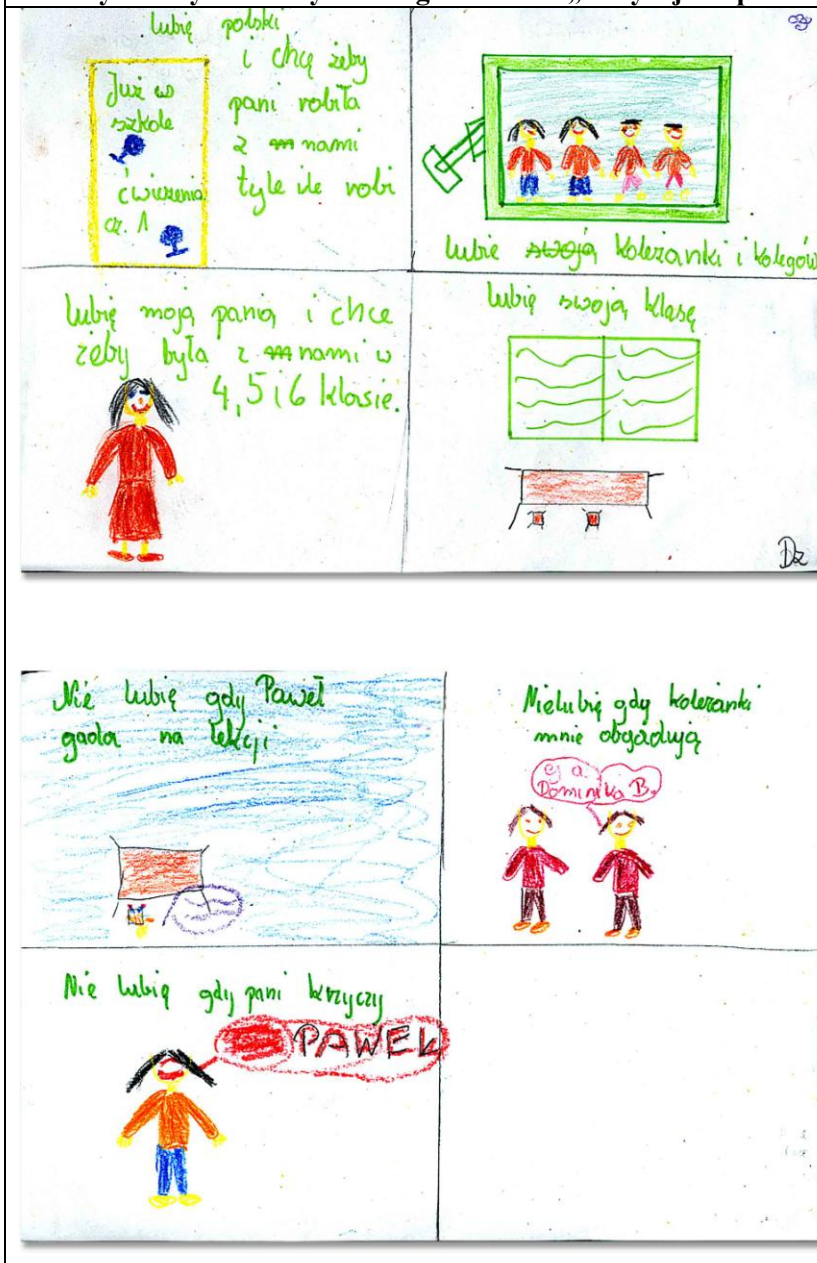 lubię polski
i chcę żeby
pani robiła
z nami
tyle ile robi
Już w
szkole
ćwiczenia
cz. 1
lubię swoją koleżanki i kolegów
lubię moją panią i chcę
żeby była z nami w
4,5 i 6 klasie.
lubię swoją klasę
Dz
Nie lubię gdy Paweł
gada na lekcji
Nielubię gdy koleżanki
mnie obgadują
ej a
Dominika B.
Nie lubię gdy pani krzyczy
PAWEŁ